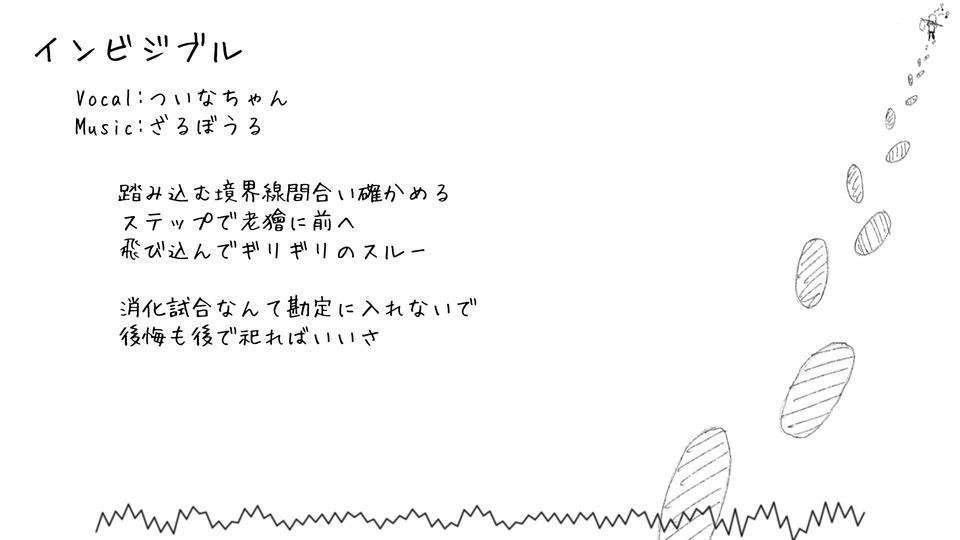 インビジブル
Vocal:ついなちゃん
Music:ざるぼうる
踏み込む境界線間合い確かめる
ステップで老獪に前へ
飛び込んでギリギリのスルー
消化試合なんて勘定に入れないで
後悔も後で祀ればいいさ